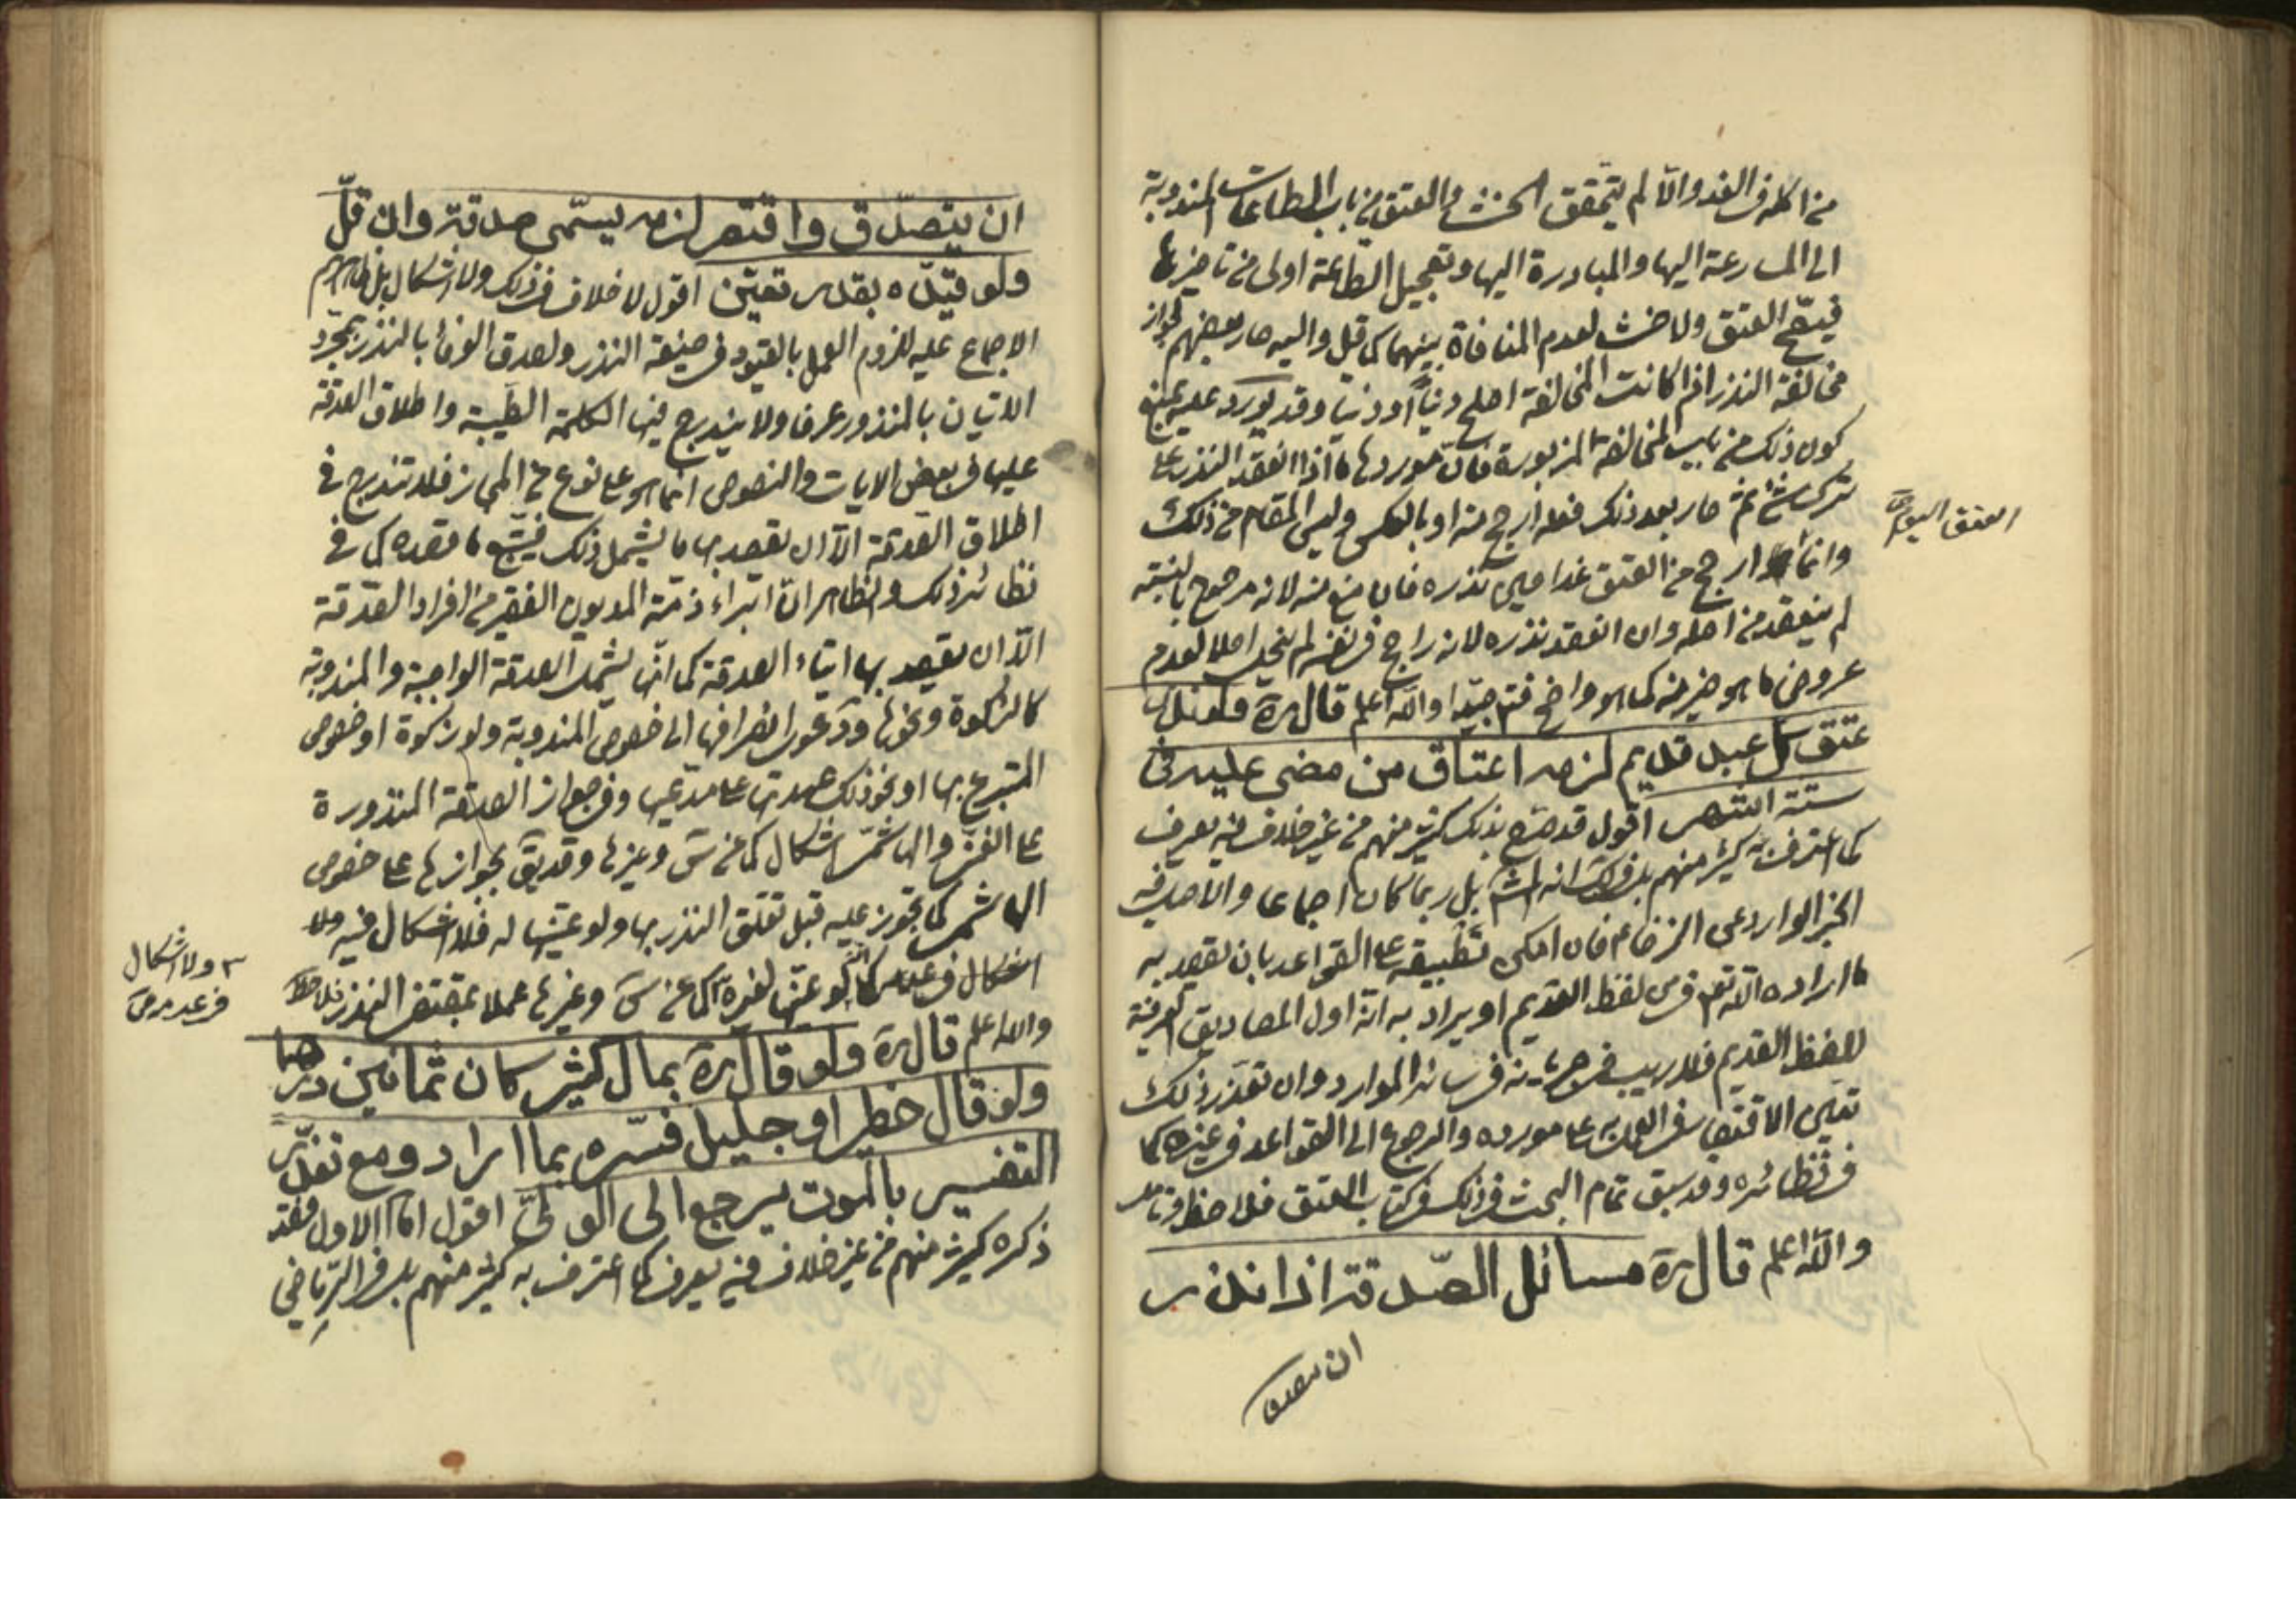 من اكله في الغد والّا لم يتحقق الحنث والعتق من باب الطاعات المندوبة
الى المسارعة اليها والمبادرة اليها وتعجيل الطاعة اولى من تاخيرها
فيصّح العتق ولا حنث لعدم المنافاة بينهما كما قيل واليه صار بعضهم لجواز
مخالفة النذر اذا كانت المخالفة اصلح ديناً او دنيا وقد يورد عليه بمنع
كون ذلك من باب المخالفة المزبورة فان موردها ما اذا انعقد النذر على
ترك شئ ثم صار بعد ذلك فعله ارجح منه او بالعكس وليس المقام من ذلك
العتق اليوم صح
وانما ارجح من العتق غدا فحين نذره فان منع منه لانه مرجوح بالنسبة
لم ينعقد من اصله وان انعقد نذره لانه راجح في نفسه لم ينحل اصلا لعدم
عروض ما هو خير منه كما هو واضح فتدبر جيّدا والله اعلم قال ره ولو نذر
عتق كل عبد قديم لزمه اعتاق من مضى عليه في
ستة اشهر اقول قد صرّح بذلك كثير منهم من غير خلاف فيه يعرف
كما اعترف به كثير منهم بل في انه بل ربما كان اجماعا والاصل فيه
الخبر الوارد عن الرضا ع فان امكن تطبيقه على القواعد بان يقصد به
ما اراده الله تعالى من لفظ القديم او يراد به انّه اول المصاديق العرفية
للفظ القديم فلا ريب في جريانه في سائر الموارد وان تعذر ذلك
تعين الاقتصار في العمل به على مورده والرجوع الى القواعد في غيره كما
في نظائره وقد سبق تمام البحث في ذلك في كتاب العتق فلاحظ وتامل
والله اعلم قال ره مسائل الصّدقة اذا نذر
ان يتصدق
ان يتصدّق واقتصر لزمه يسمّى صدقة وان قلّ
ولو قيّده بقدر تعيّن اقول لا خلاف في ذلك ولا اشكال بل ظاهرهم
الاجماع عليه للزوم العمل بالقيود في صيغة النذر ولصدق الوفاء بالنذر بمجرد
الاتيان بالمنذور عرفا ولا يندرج فيها الكلمة الطيبة واطلاق الصدقة
عليها في بعض الايات والنصوص انما هو على نوع من المجاز فلا تندرج في
اطلاق الصدقة الّا ان يقصد بها ما يشمل ذلك فيتبع ما قصده كما في
نظائر ذلك والظاهر ان ابراء ذمّة المديون الفقير من افراد الصّدقة
الّا ان يقصد بها ايتاء الصدقة كما انّها يشمل الصدقة الواجبة والمندوبة
كالزكوة ونحوها ودعوى انصرافها الى خصوص المندوبة ولو زكوة او خصوص
المتبرع بها او نحو ذلك عهدتها على مدعيها وفي جواز الصدقة المنذورة
على الغني والهاشمي اشكال كما في س وغيرها وقد يق بجوازها على خصوص
الهاشمي كما يجوز عليه قبل تعلق النذر بها ولو عينها له فلا اشكال فيه ولا
٣ ولا اشكال
في عدم صح
اشكال في عدم كما لو عيّنها لغيره كما عن س وغيرها عملا بمقتضى النذر فلاحظ
والله اعلم قال ره ولو قال ره بمال كثير كان ثمانين درهما
ولو قال خطير او جليل فسّره بما اراد ومع تعذّر
التفسير بالموت يرجع الى الولىّ اقول امّا الاول فقد
ذكره كثير منهم من غير خلاف فيه يعرف كما اعترف به كثير منهم بل في الرّياض